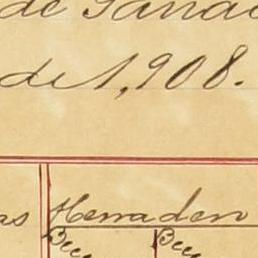 de Ganad
de 1,908.
as Herraden
Bue Bue